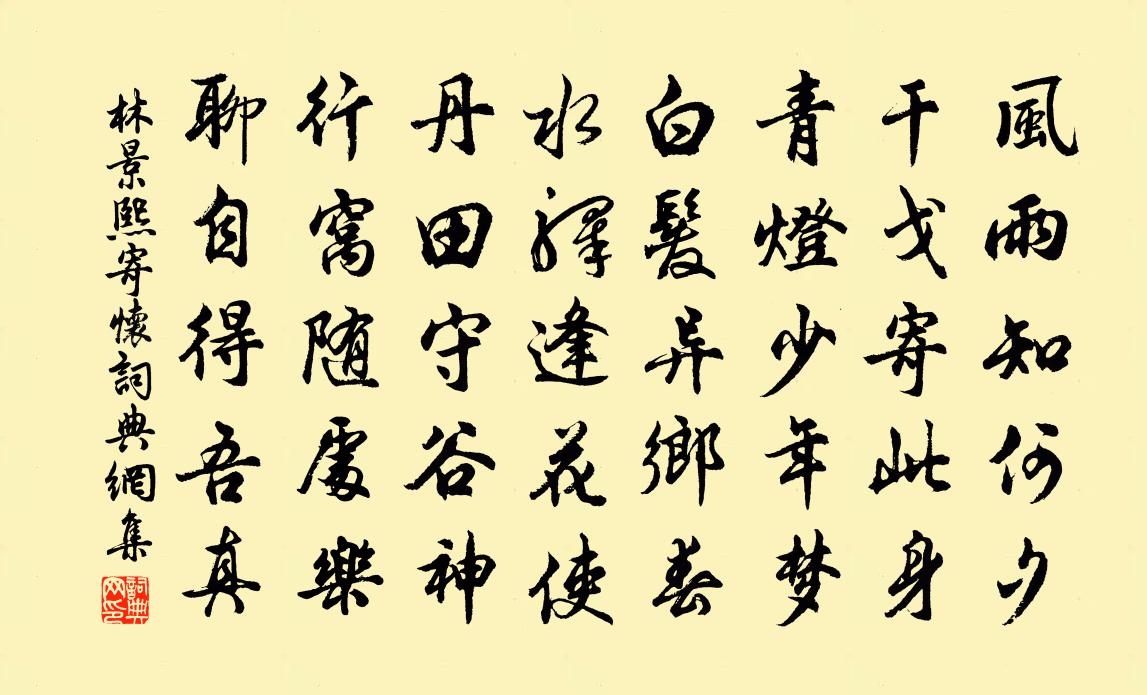 風雨知何夕
干戈寄此身
青燈少年梦
白髮异鄉春
水驛逢花使
丹田守谷神
行窩随處樂
聊自得吾真
林景熙寄懷詞典網集
詞典网印